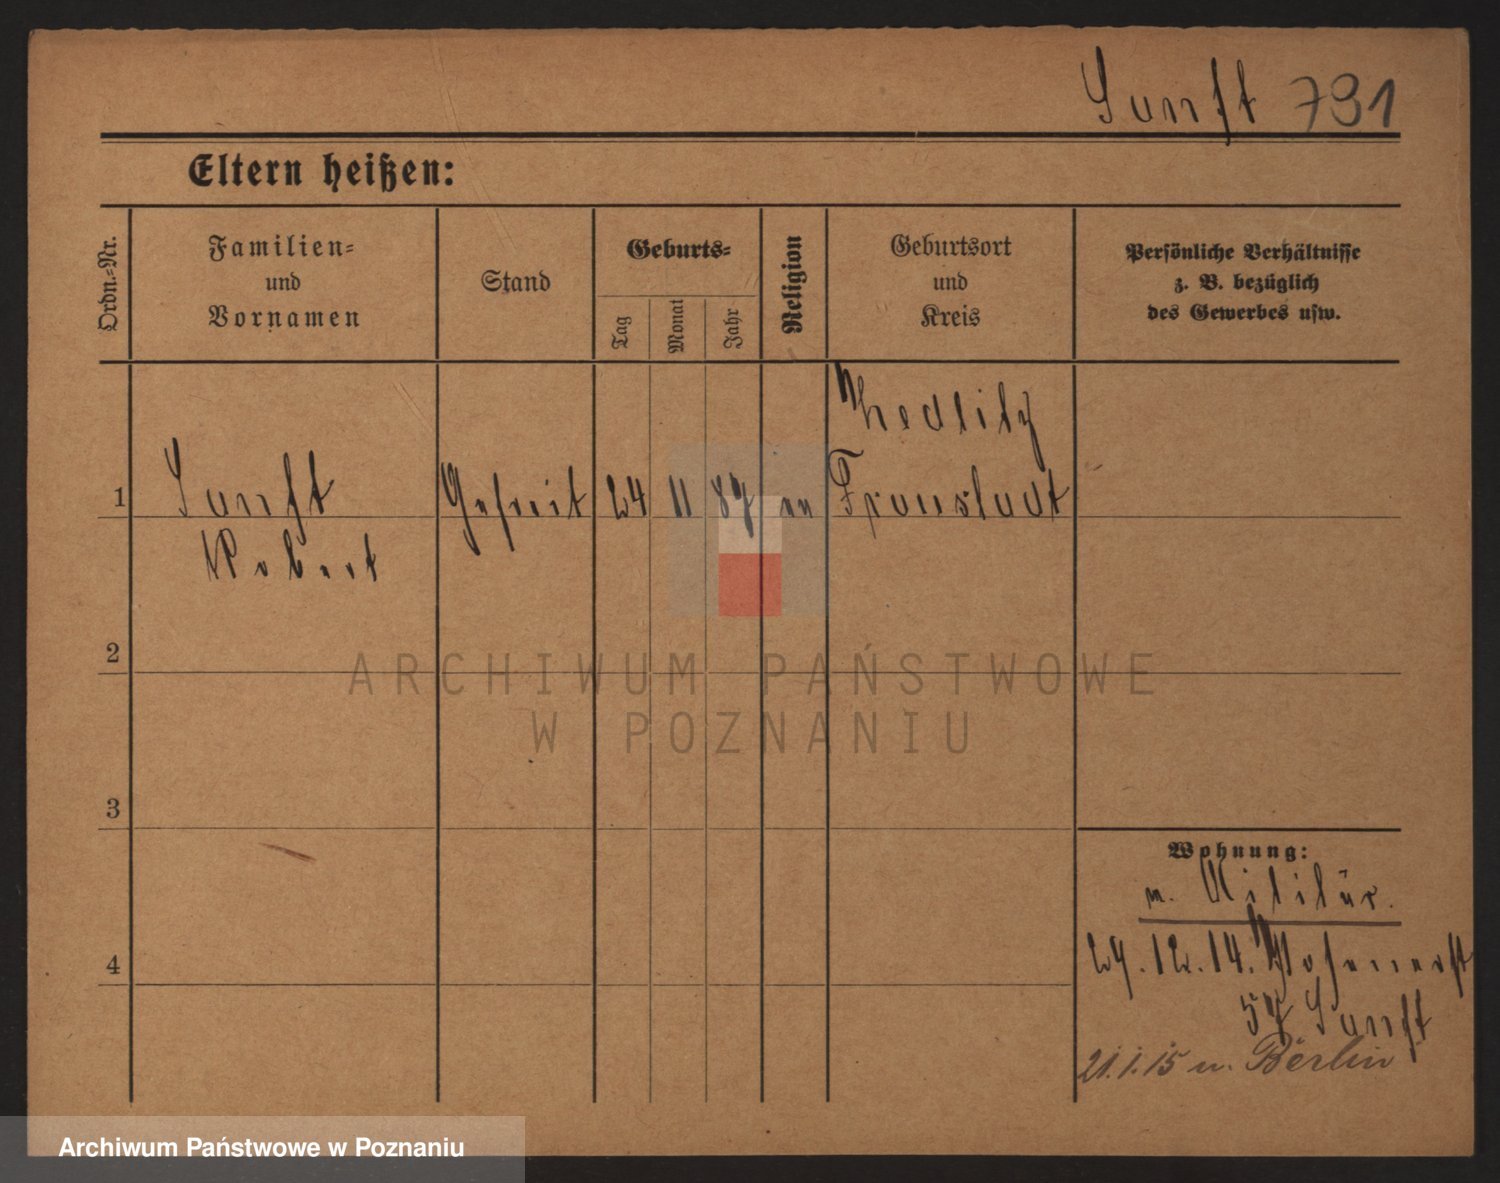 Sanft 791
Eltern heißen:
Ordn.-Nr.
Familien-
und
Vornamen
Stand
Geburts-
Tag
Monat
Jahr
Religion
Geburtsort
und
Kreis
Persönliche Verhältnisse
z. B. bezüglich
des Gewerbes usw.
1
Sanft
Robert
Gefreit
24
11
87
ev
Zedlitz
Fraustadt
2
3
4
Wohnung:
v. Militär.
29.12.14. Posenerst
57 Sanft
21.1.15 n. Berlin
ARCHIWUM PAŃSTWOWE
W POZNANIU
Archiwum Państwowe w Poznaniu